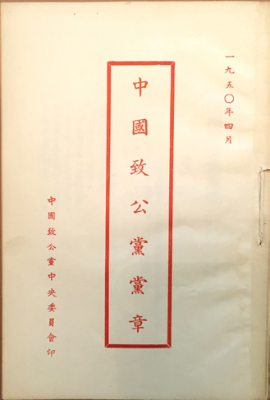 一九五〇年四月
中國致公黨黨章
中國致公黨中央委員會印